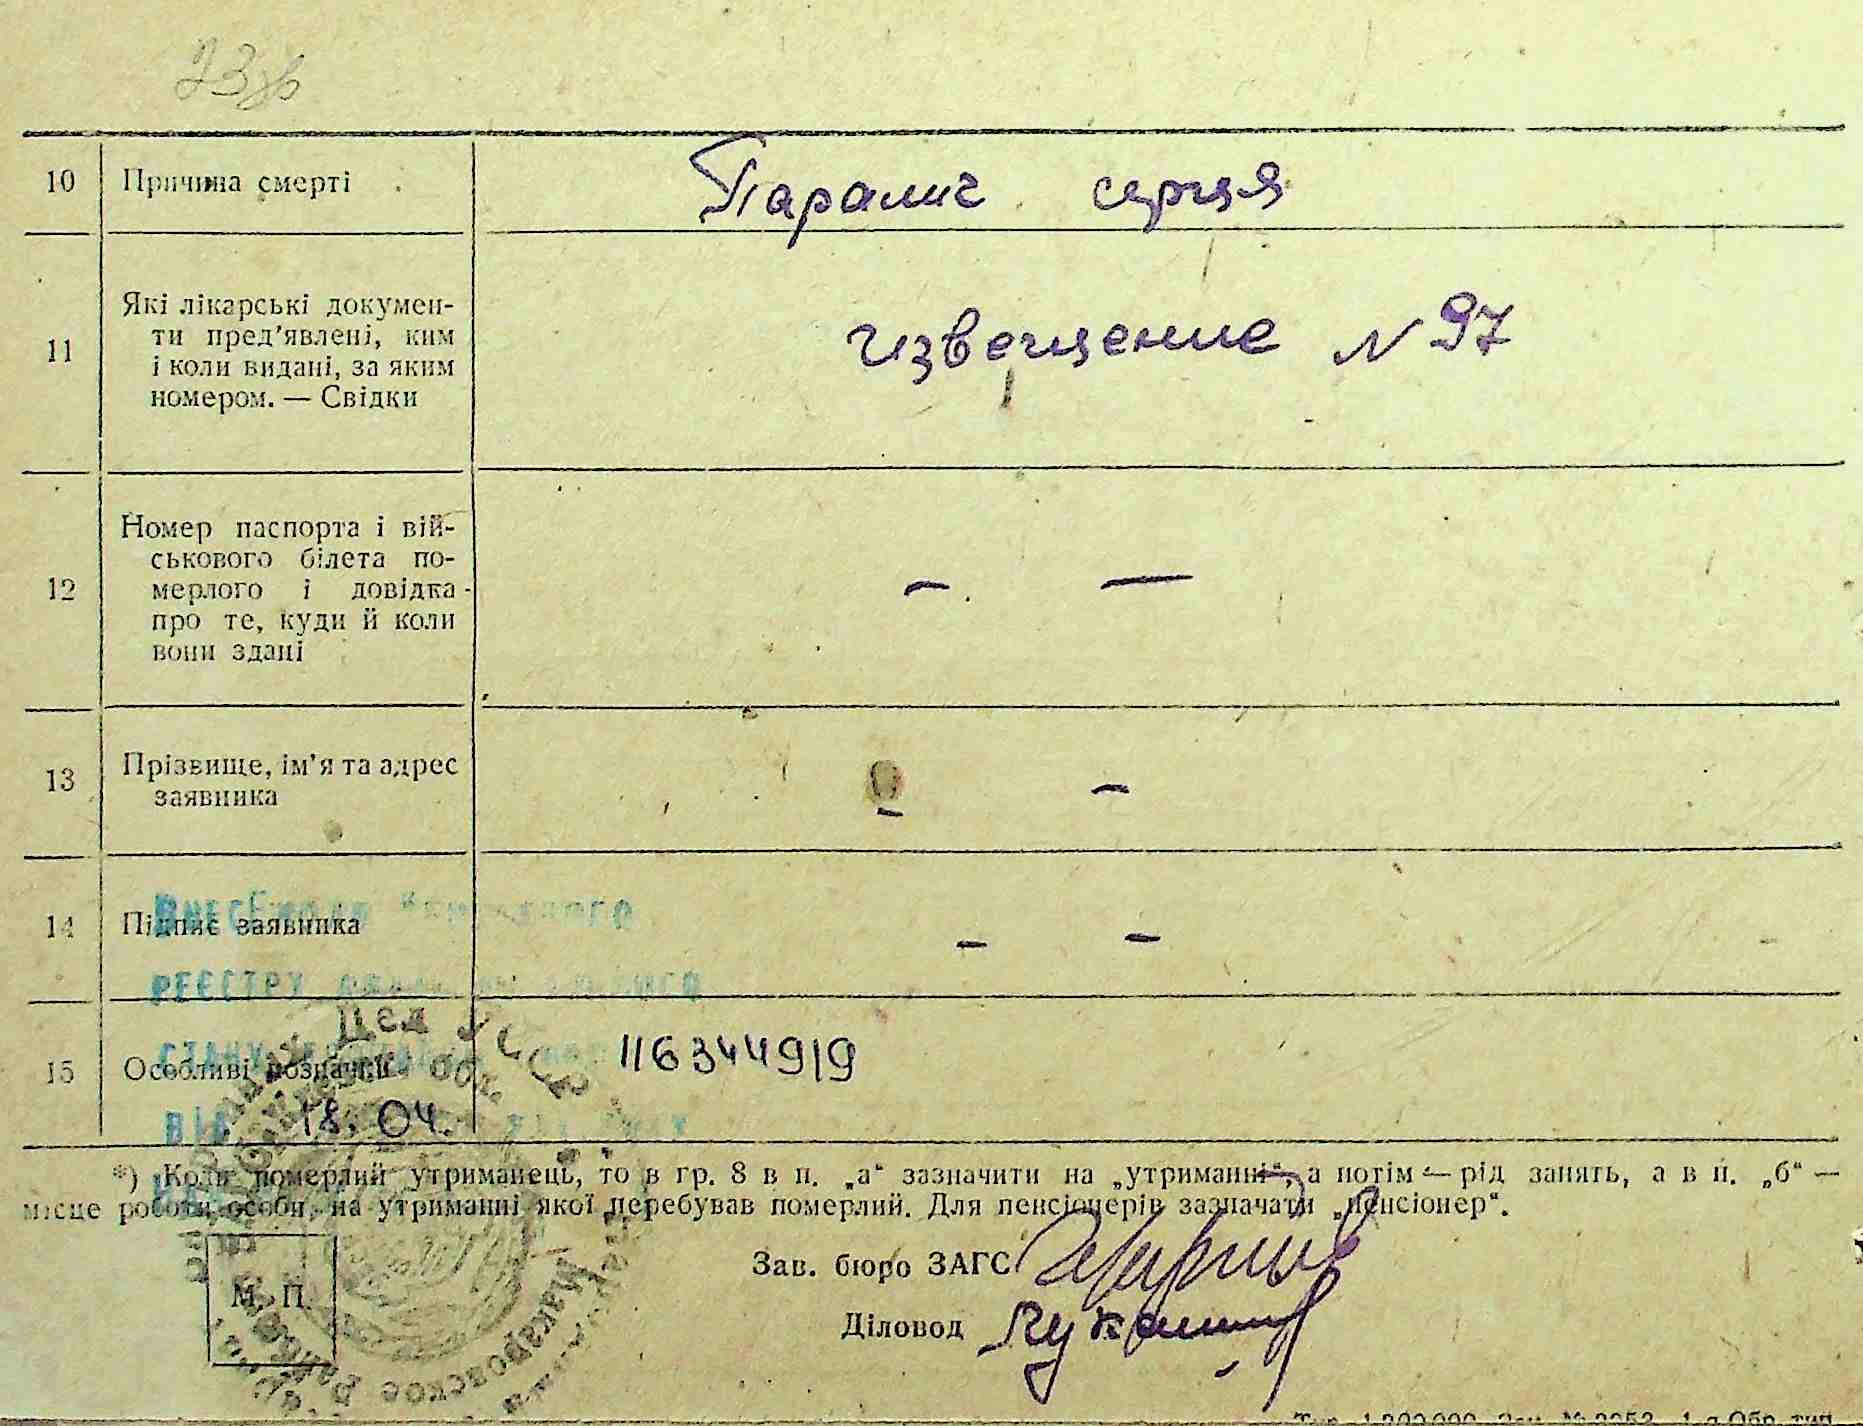 10 Причина смерті Паралич серця
11 Які лікарські докумен-
ти пред’явлені, ким
і коли видані, за яким
номером. — Свідки
Извещение N 97
12 Номер паспорта і вій-
ськового білета по-
мерлого і довідка
про те, куди й коли
вони здані
— —
13 Прізвище, ім’я та адрес
заявника
— —
14 Підпис заявника — —
РЕЄСТРУ
15 Особливі позначки 116344919
ВІД 18.04.
*) Коли померлий утриманець, то в гр. 8 в п. „а“ зазначити на „утриманні“, а потім — рід занять, а в п. „б“ —
місце роботи особи, на утриманні якої перебував померлий. Для пенсіонерів зазначати „пенсіонер“.
Зав. бюро ЗАГС
М. П.
Діловод
Макаровское